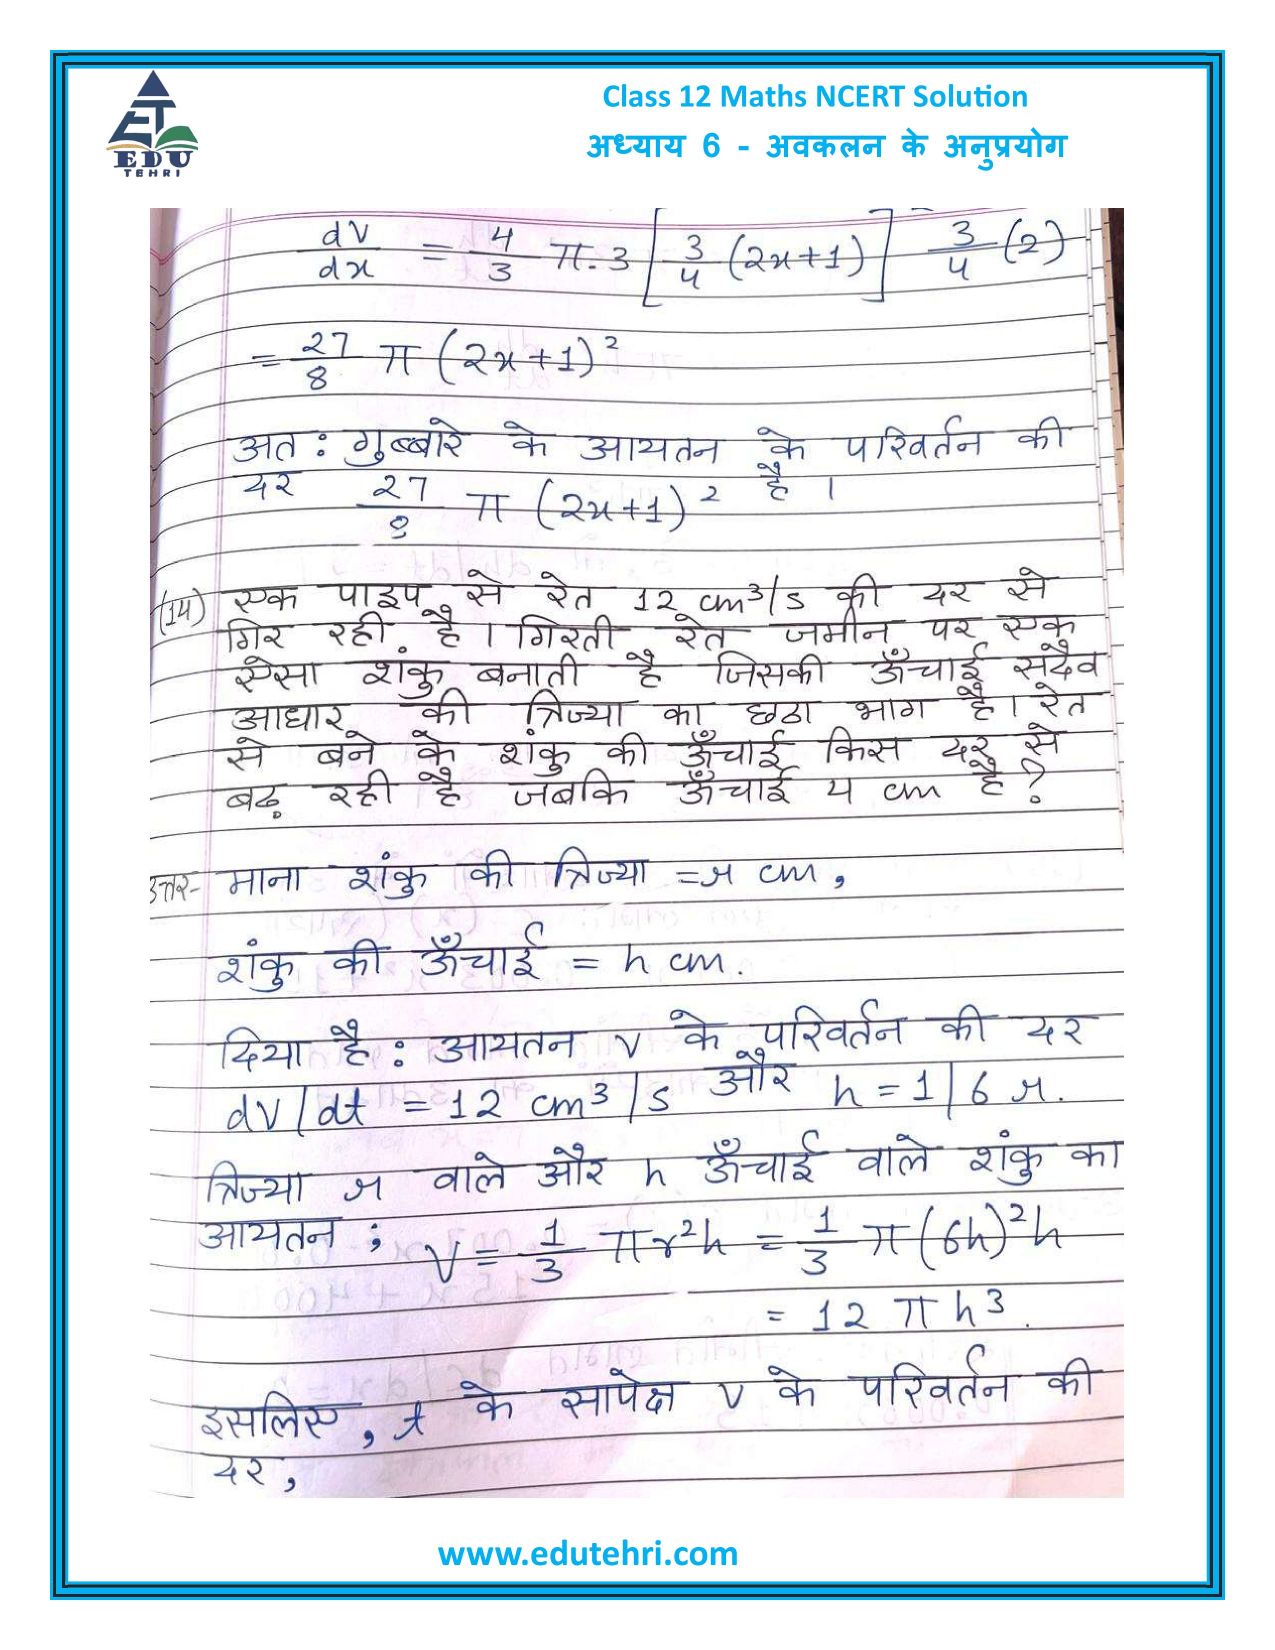 ET
EDU
TEHRI
Class 12 Maths NCERT Solution
अध्याय 6 - अवकलन के अनुप्रयोग
dV/dx = 4/3 π.3 [3/4 (2x+1)] 3/4 (2)
= 27/8 π (2x+1)²
अत : गुब्बारे के आयतन के परिवर्तन की
दर 27/8 π (2x+1)² है ।
(14) एक पाइप से रेत 12 cm³/s की दर से
गिर रही है । गिरती रेत जमीन पर एक
ऐसा शंकु बनाती है जिसकी ऊँचाई सदैव
आधार की त्रिज्या का छठा भाग है। रेत
से बने के शंकु की ऊँचाई किस दर से
बढ़ रही है जबकि ऊँचाई 4 cm है?
उत्तर- माना शंकु की त्रिज्या = r cm,
शंकु की ऊँचाई = h cm.
दिया है : आयतन V के परिवर्तन की दर
dV/dt = 12 cm³/s और h = 1/6 r.
त्रिज्या r वाले और h ऊँचाई वाले शंकु का
आयतन ; V = 1/3 πr²h = 1/3 π(6h)²h
= 12 π h³.
इसलिए, t के सापेक्ष V के परिवर्तन की
दर,
www.edutehri.com